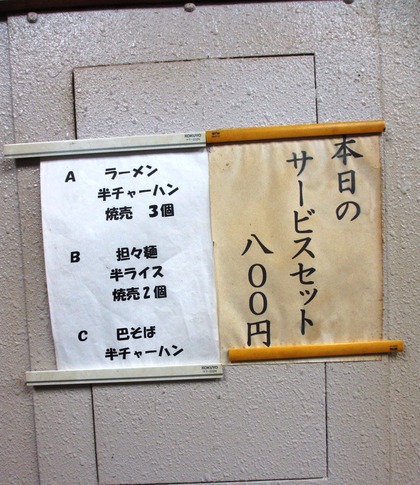 本日の
サービスセット
八〇〇円
A ラーメン
半チャーハン
焼売 3個
B 担々麺
半ライス
焼売2個
C 巴そば
半チャーハン
KOKUYO
KOKUYO